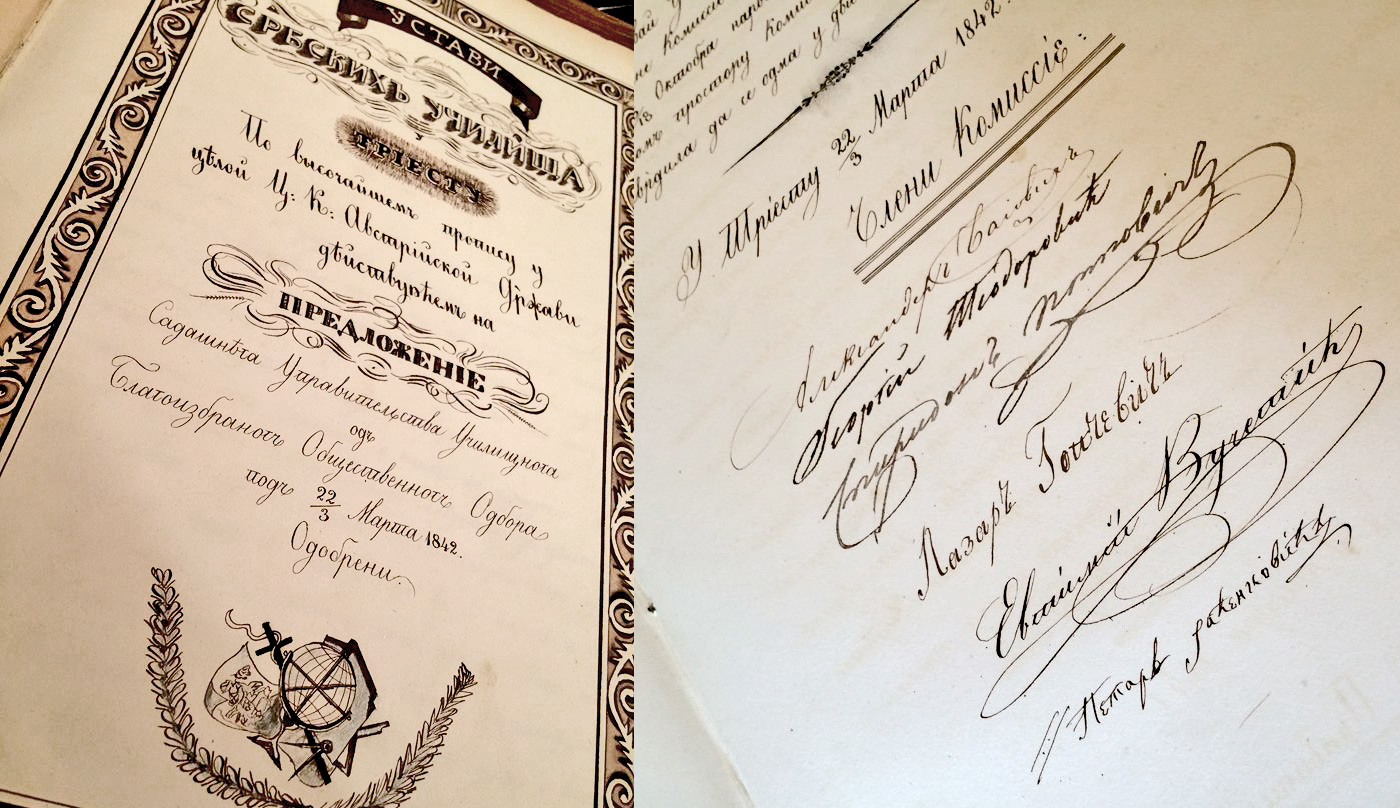 УСТАВИ
СРБСКИХЪ УЧИЛИЩА
У
ТРІЕСТУ
По височайшемъ пропису у
цѣлой Ц: К: Австрійской Држави
дѣйствуюћемъ на
ПРЕДЛОЖЕНІЕ
Садашнѣга Управительства Училищнога
одъ
Благоизбраногъ Общественногъ Одбора
подъ 22/3 Марта 1842.
Одобрени.
Комисс
Октобра наро
простору Коми
врдила да се одма у дѣ
У Тріесту 22/3 Марта 1842.
Члени Комиссіе:
Александеръ
Георгій Теодоровић
Спиридонъ Поповичъ
Лазаръ Гопчевичъ
Евтимій Вучетић
Петаръ